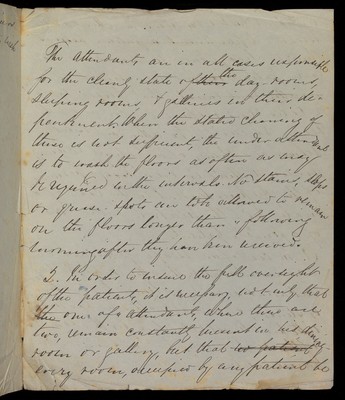 The Attendants are in all cases responsible
for the cleanly state of their the day rooms,
sleeping rooms, & galleries in their de-
partment. When the stated cleaning of
these is not sufficient, the under attendant
is to wash the floors as often as may
be required in the intervals. No stains, slops
or grease spots are to be allowed to remain
on the floors longer than a following
morning after they have been received.
2. In order to ensure the full oversight
of the patients, it is necessary not only that
the one of attendants, where there are
two, remain constantly present in his day
room or gallery, but that no patient
every room, occupied by any patient be